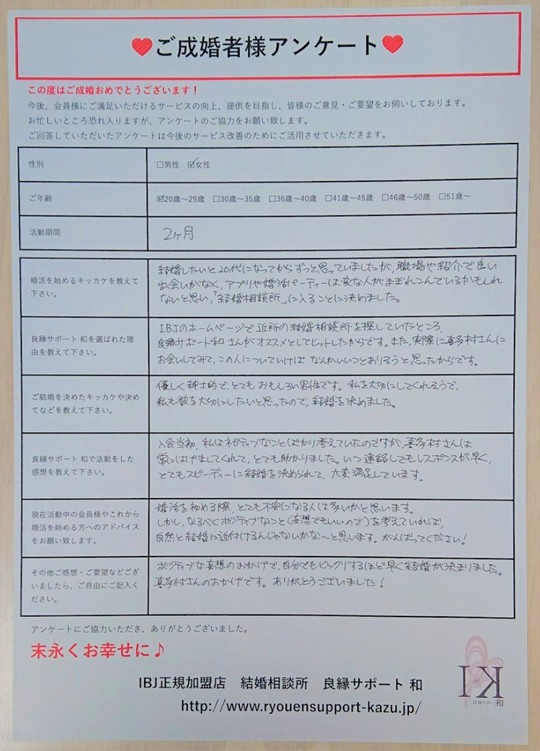 ♥ご成婚者様アンケート♥
この度はご成婚おめでとうございます！
今後、会員様にご満足いただけるサービスの向上、提供を目指し、皆様のご意見・ご要望をお伺いしております。
お忙しいところ恐れ入りますが、アンケートのご協力をお願い致します。
ご回答していただいたアンケートは今後のサービス改善のためにご活用させていただきます。
性別
□男性 ☑女性
ご年齢
☑20歳～29歳 □30歳～35歳 □36歳～40歳 □41歳～45歳 □46歳～50歳 □51歳～
活動期間
2ヶ月
婚活を始めるキッカケを教えて
下さい。
結婚したいと20代になってからずっと思っていましたが、職場や紹介で良い
出会いがなく、アプリや婚活パーティーは変な人がまぎれこんでいるかもしれ
ないと思い、「結婚相談所」に入ることに決めました。
良縁サポート 和を選ばれた理
由を教えて下さい。
IBJのホームページで近所の結婚相談所を探していたところ、
良縁サポート和さんがオススメとしてヒットしたからです。また、実際に喜多村さんに
お会いしてみて、この人についていけばなんかいいことありそうと思ったからです。
ご結婚を決めたキッカケや決め
てなどを教えて下さい。
優しく紳士的で、とてもおもしろい男性です。私を大切にしてくれそうで、
私も彼を大切にしたいと思ったので、結婚を決めました。
良縁サポート 和で活動をした
感想を教えて下さい。
入会当初、私はネガティブなことばかり考えていたのですが、喜多村さんは
常にはげましてくれて、とても助かりました。いつ連絡してもレスポンスが早く、
とてもスピーディーに結婚を決められて、大変満足しています。
現在活動中の会員様やこれから
婚活を始める方へのアドバイス
をお願い致します。
婚活を初める際、とても不安になる人は多いかと思います。
しかし、なるべくポジティブなこと(妄想でもいいので)を考えていれば、
自然と結婚に近付けるんじゃないかな～と思います。がんばってください！
その他ご感想・ご要望などござ
いましたら、ご自由にご記入く
ださい。
ポジティブな妄想のおかげで、自分でもビックリするほど早く結婚が決まりました。
喜多村さんのおかげです。ありがとうございました！
アンケートにご協力いただき、ありがとうございました。
末永くお幸せに♪
IBJ正規加盟店 結婚相談所 良縁サポート 和
http://www.ryouensupport-kazu.jp/
KI
良縁サポート 和